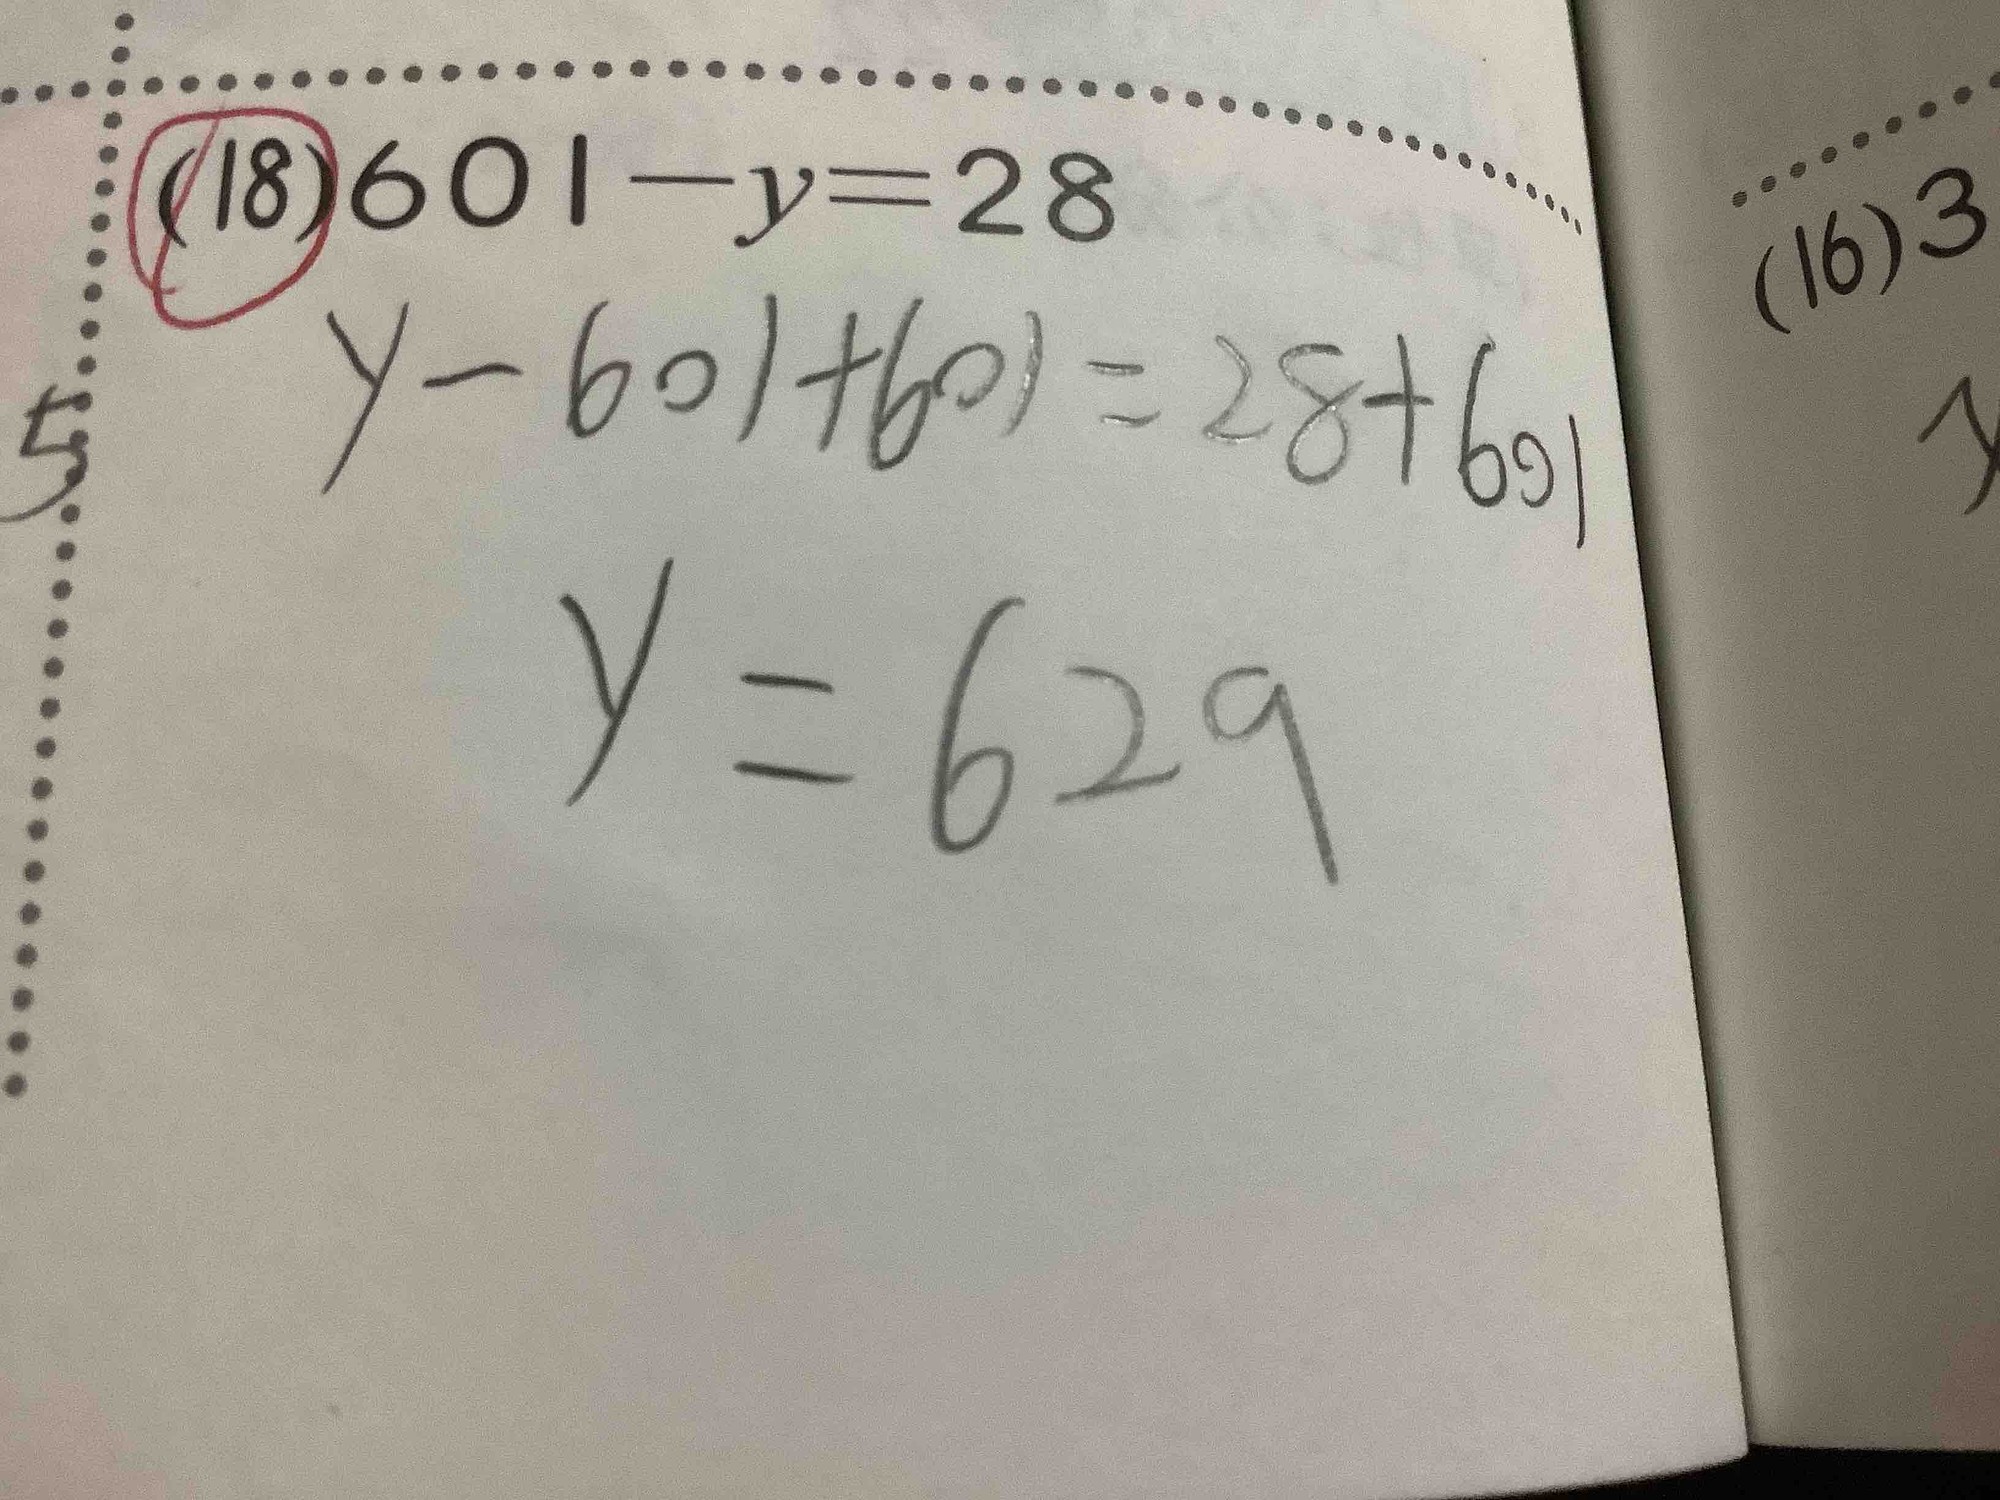 (18) 601－y＝28
y－601+601＝28+601
y＝629
5
(16) 3
y